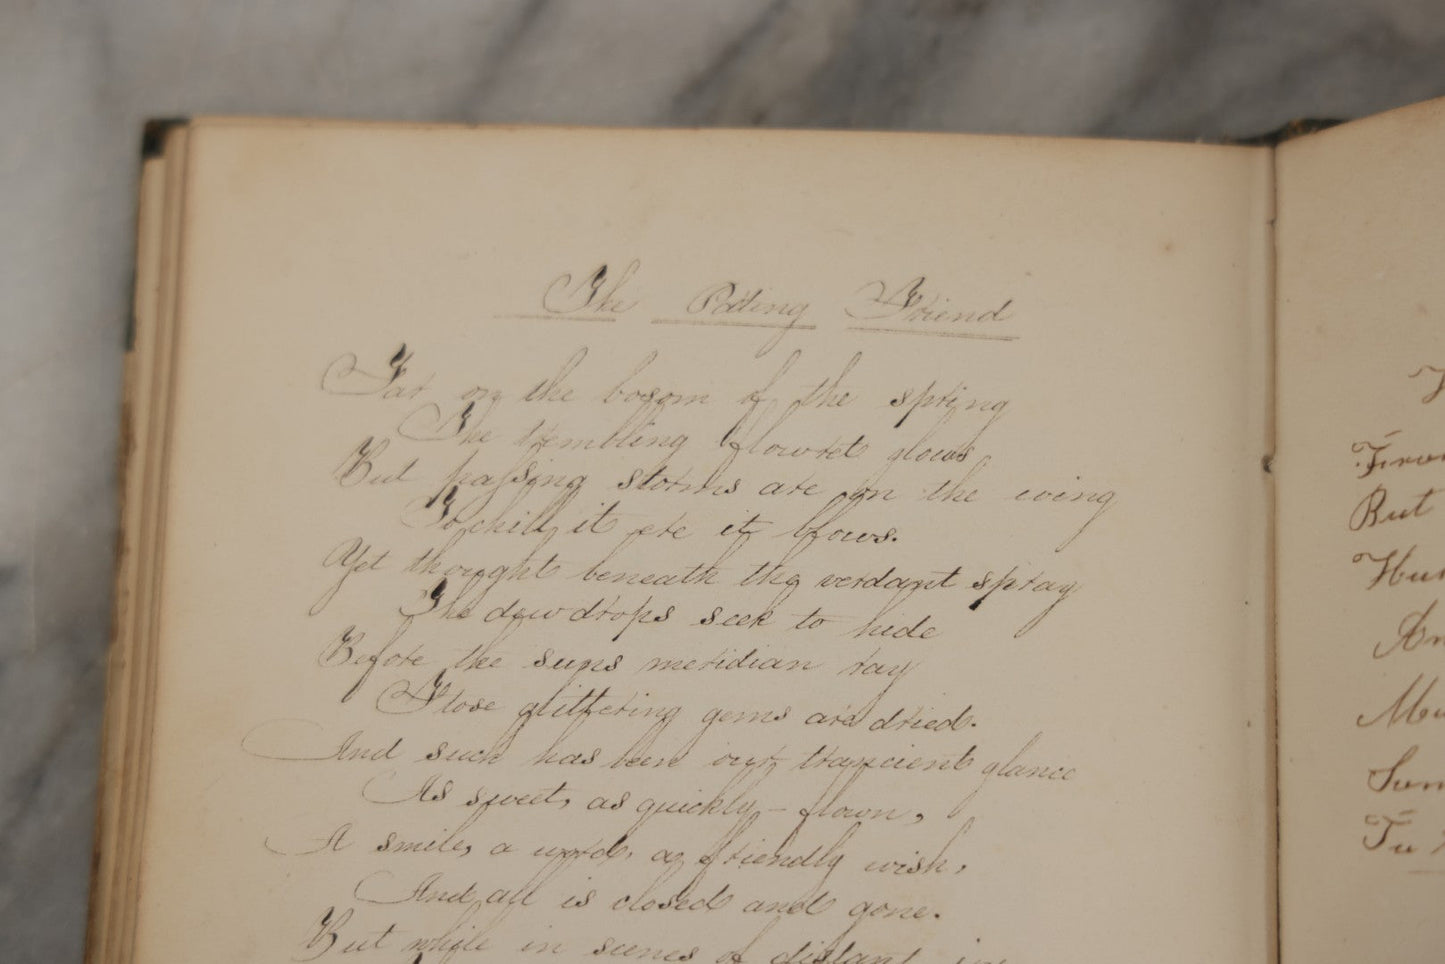 The Parting Friend
Far on the bosom of the spring
The trembling flowret glows
But passing storms are on the wing
To chill it ere it blows.
Yet thought beneath the verdant spray
The dewdrops seek to hide
Before the suns meridian ray
Those glittering gems are dried.
And such has been our trancient glance
As sweet, as quickly - flown,
A smile, a word, a friendly wish,
And all is closed and gone.
But while in scenes of distant
But